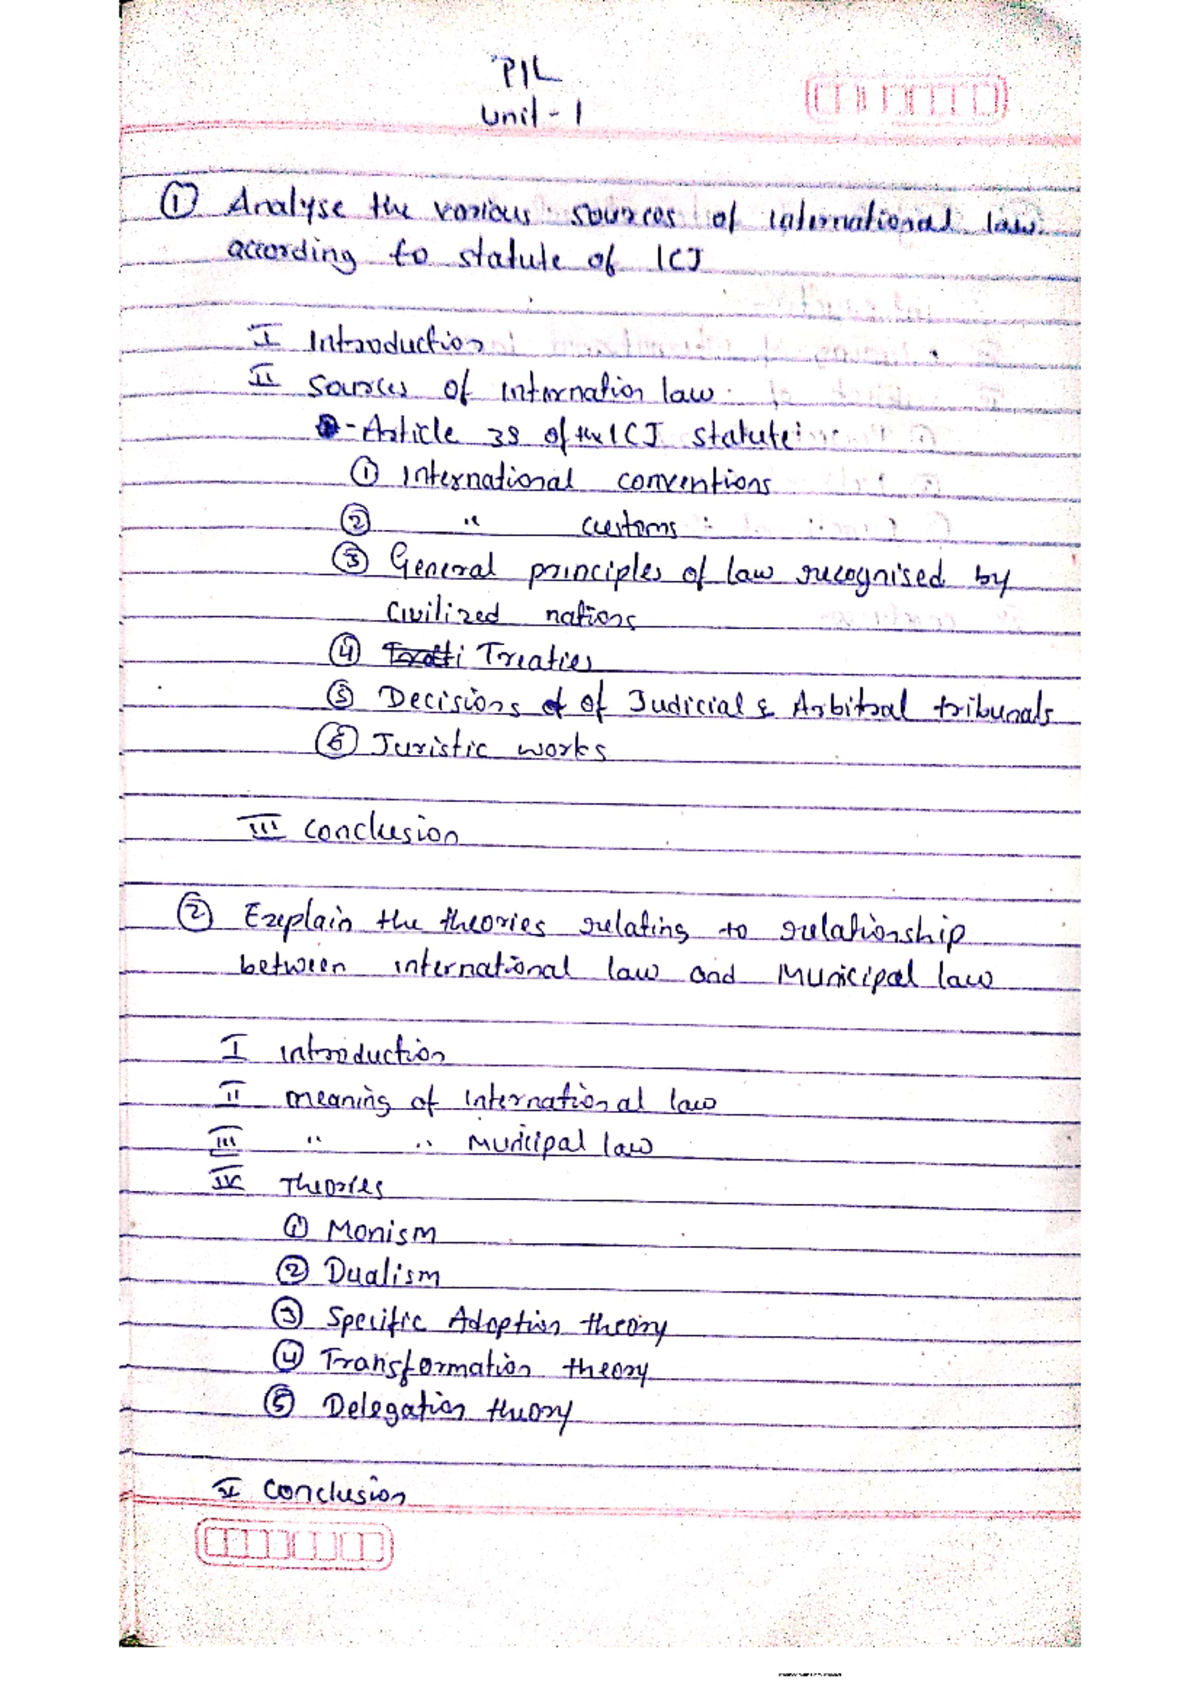 PIL
Unit - 1
① Analyse the various sources of international law
according to statute of ICJ
I Introduction
II Sources of Internation law
- Article 38 of the ICJ statute:
① International conventions
② " customs :
③ General principles of law recognised by
civilized nations
④ Treaties
⑤ Decisions of Judicial & Arbitral tribunals
⑥ Juristic works
III Conclusion
② Explain the theories relating to relationship
between international law and Municipal law
I introduction
II meaning of International law
III " " Municipal law
IV Theories
① Monism
② Dualism
③ Specific Adoption theory
④ Transformation theory
⑤ Delegation theory
V Conclusion